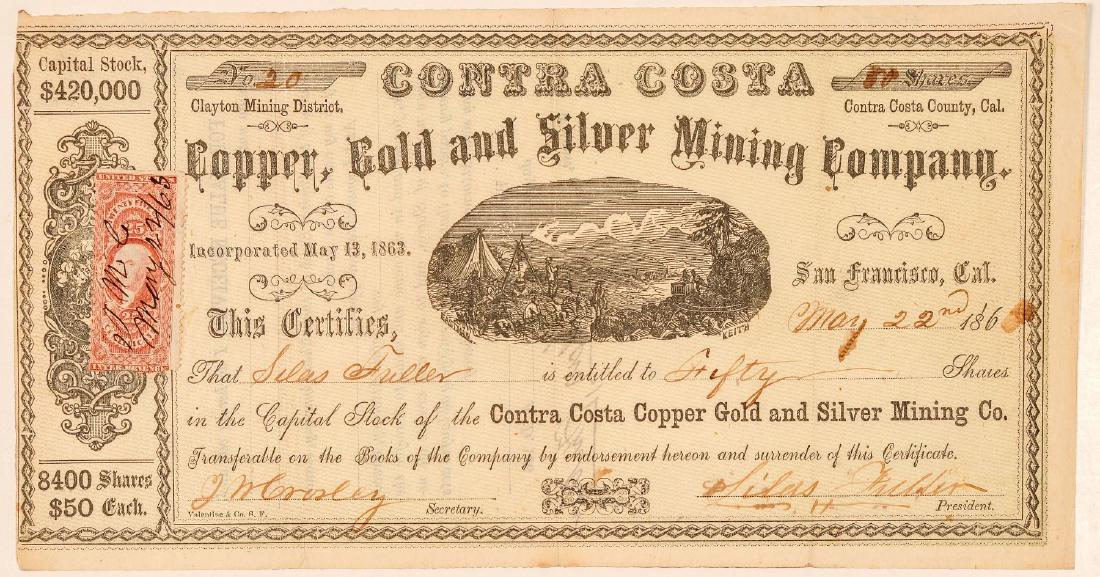 Capital Stock,
$420,000
No. 20
CONTRA COSTA
50 Shares.
Clayton Mining District.
Contra Costa County, Cal.
Copper, Gold and Silver Mining Company.
Incorporated May 13, 1863.
San Francisco, Cal.
This Certifies,
May 22nd 186
KEITH
That Silas Fuller is entitled to Fifty Shares
in the Capital Stock of the Contra Costa Copper Gold and Silver Mining Co.
Transferable on the Books of the Company by endorsement hereon and surrender of this Certificate.
Secretary.
Silas Fuller
President.
Valentine & Co. S. F.
8400 Shares
$50 Each.
UNITED STATES
INTER REVENUE
May 22/63